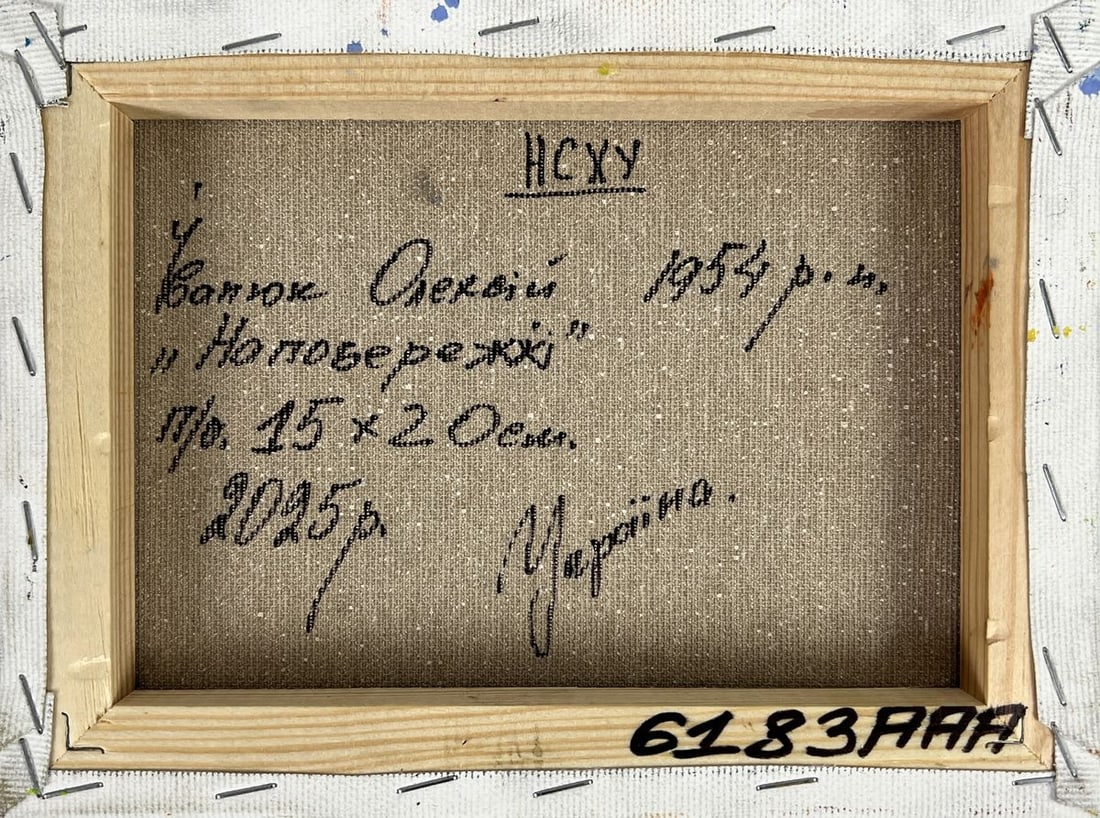 НСХУ
Іванюк Олексій 1954 р.н.
„Напобережжі”
п/о. 15 x 20 см.
2025р.
Україна.
6183AAA